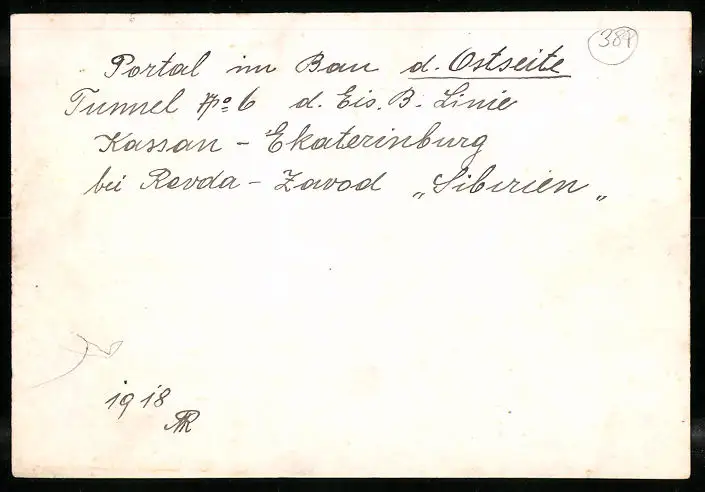 384
Portal im Bau d. Ostseite
Tunnel No 6 d. Eis. B. Linie
Kassan - Ekaterinburg
bei Revda - Zavod „Sibirien„
1918